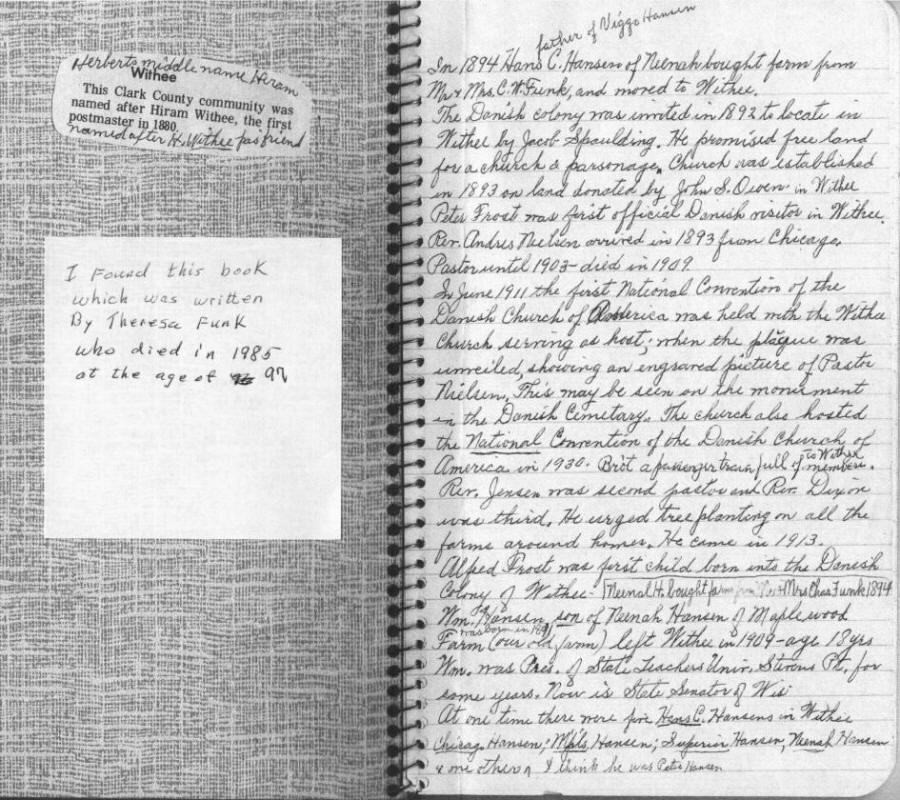 Herbert's middle name Hiram
Withee
This Clark County community was
named after Hiram Withee, the first
postmaster in 1880.
named after H. Withee pa's friend
I Found this book
which was written
By Theresa Funk
who died in 1985
at the age of 97
father of Viggo Hansen
In 1894 Hans C. Hansen of Neenah bought farm from
Mr & Mrs. C. W. Funk, and moved to Withee.
The Danish colony was invited in 1892 to locate in
Withee by Jacob Spaulding. He promised free land
for a church & parsonage. Church was established
in 1893 on land donated by John S. Owen in Withee
Peter Frost was first official Danish visitor in Withee.
Rev. Andres Nielsen arrived in 1893 from Chicago.
Pastor until 1903 - died in 1909.
In June 1911 the first National Convention of the
Danish Church of America was held with the Withee
Church serving as host; when the plaque was
unveiled, showing an engraved picture of Pastor
Nielsen. This may be seen on the monument
in the Danish Cemetary. The church also hosted
the National Convention of the Danish Church of
America in 1930. Bro't a passenger train full of members to Withee.
Rev. Jensen was second pastor and Rev. Dixion
was third. He urged tree planting on all the
farms around homes. He came in 1913.
Alfred Frost was first child born into the Danish
Colony of Withee - Neenah H. bought farm from Mr & Mrs Chas Funk 1894
Wm. Hansen, son of Neenah Hansen of Maplewood
was born in 1891
Farm (our old farm) left Withee in 1909 - age 18 yrs
Wm. was Pres. of State Teachers Univ. Stevens Pt. for
some years. Now is State Senator of Wis.
At one time there were five Hans C. Hansens in Withee
Chicago Hansen; Mpls. Hansen; Superior Hansen, Neenah Hansen
& one other, I think he was Peter Hansen